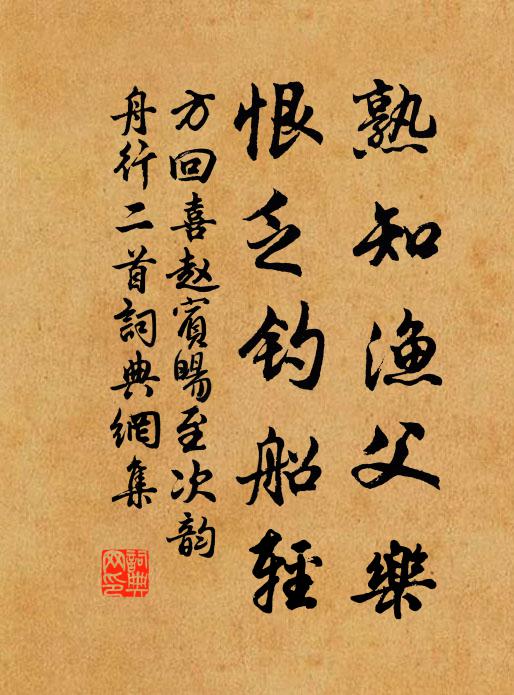 熟知渔父樂
恨乏钓船輕
方回喜赵賓暘至次韵
舟行二首詞典網集
詞典
网印